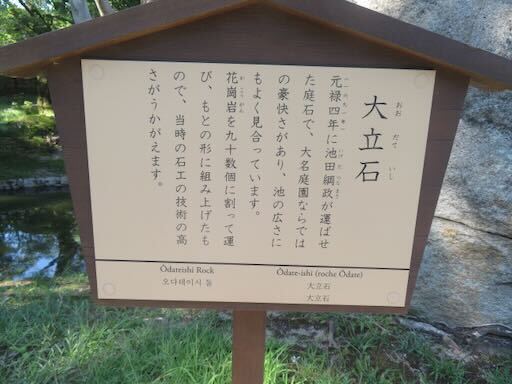 大立石
元禄四年に池田綱政が運ばせ
た庭石で、大名庭園ならでは
の豪快さがあり、池の広さに
もよく見合っています。
花崗岩を九十数個に割って運
び、もとの形に組み上げたも
ので、当時の石工の技術の高
さがうかがえます。
Ōdateishi Rock
오다테이시 돌
Ōdate-ishi (roche Ōdate)
大立石
大立石